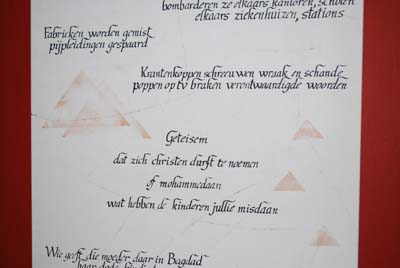 bombarderen ze elkaars kantoren, scholen
elkaars ziekenhuizen, stations
Fabrieken worden gemist
pijpleidingen gespaard
Krantenkoppen schreeuwen wraak en schande
poppen op tv braken verontwaardigde woorden
Geteisem
dat zich christen durft te noemen
of mohammedaan
wat hebben de kinderen jullie misdaan
Wie geeft die moeder daar in Bagdad
haar dode